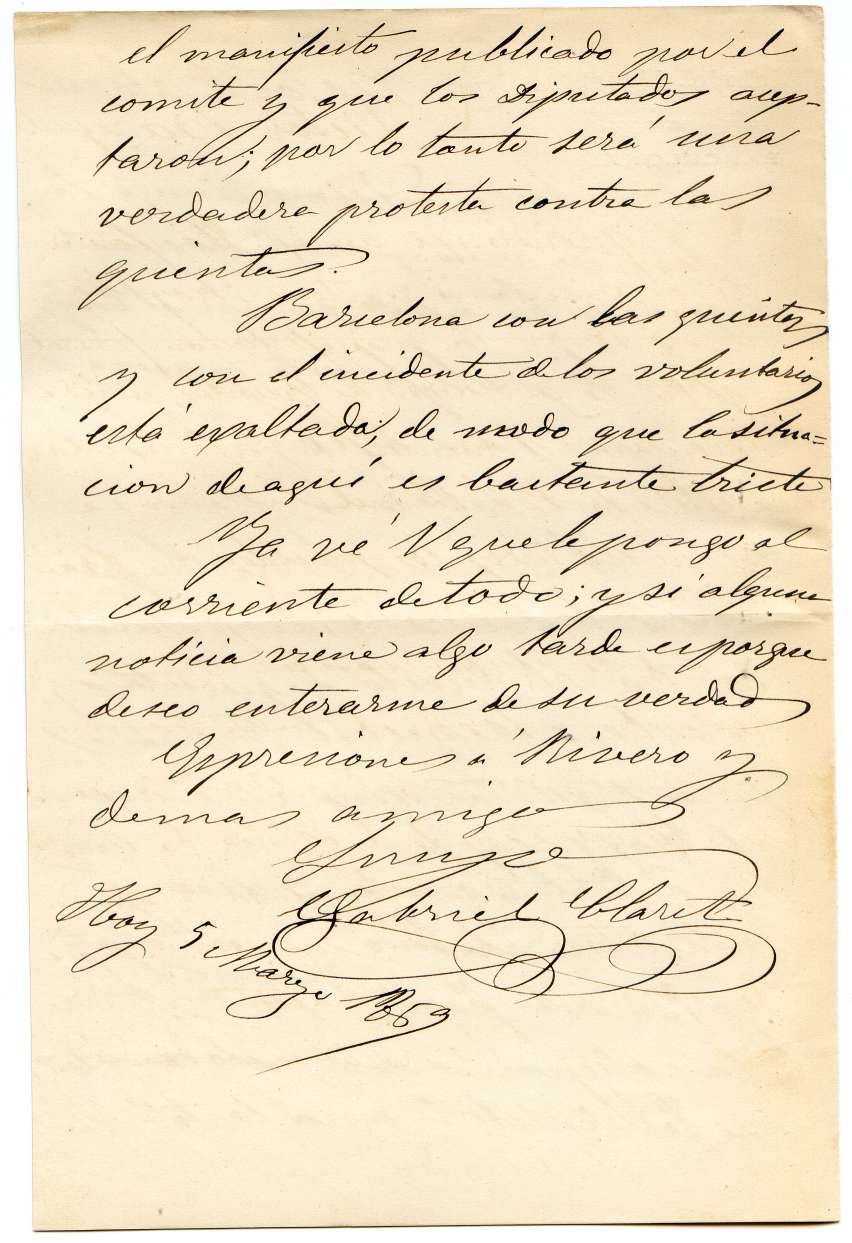 el manifiesto publicado por el
comite y que los Diputados acep-
taron; por lo tanto será una
verdadera protesta contra las
quintas.
Barcelona con las quintas
y con el incidente de los voluntarios
está exaltada; de modo que la situa=
cion de aquí es bastante triste
Ya vé V que le pongo al
corriente de todo; y si alguna
noticia viene algo tarde es porque
deseo enterarme de su verdad
Expresiones á Rivero y
demas amigos
Suyo
Gabriel Claret
Hoy 5 Marzo 1869